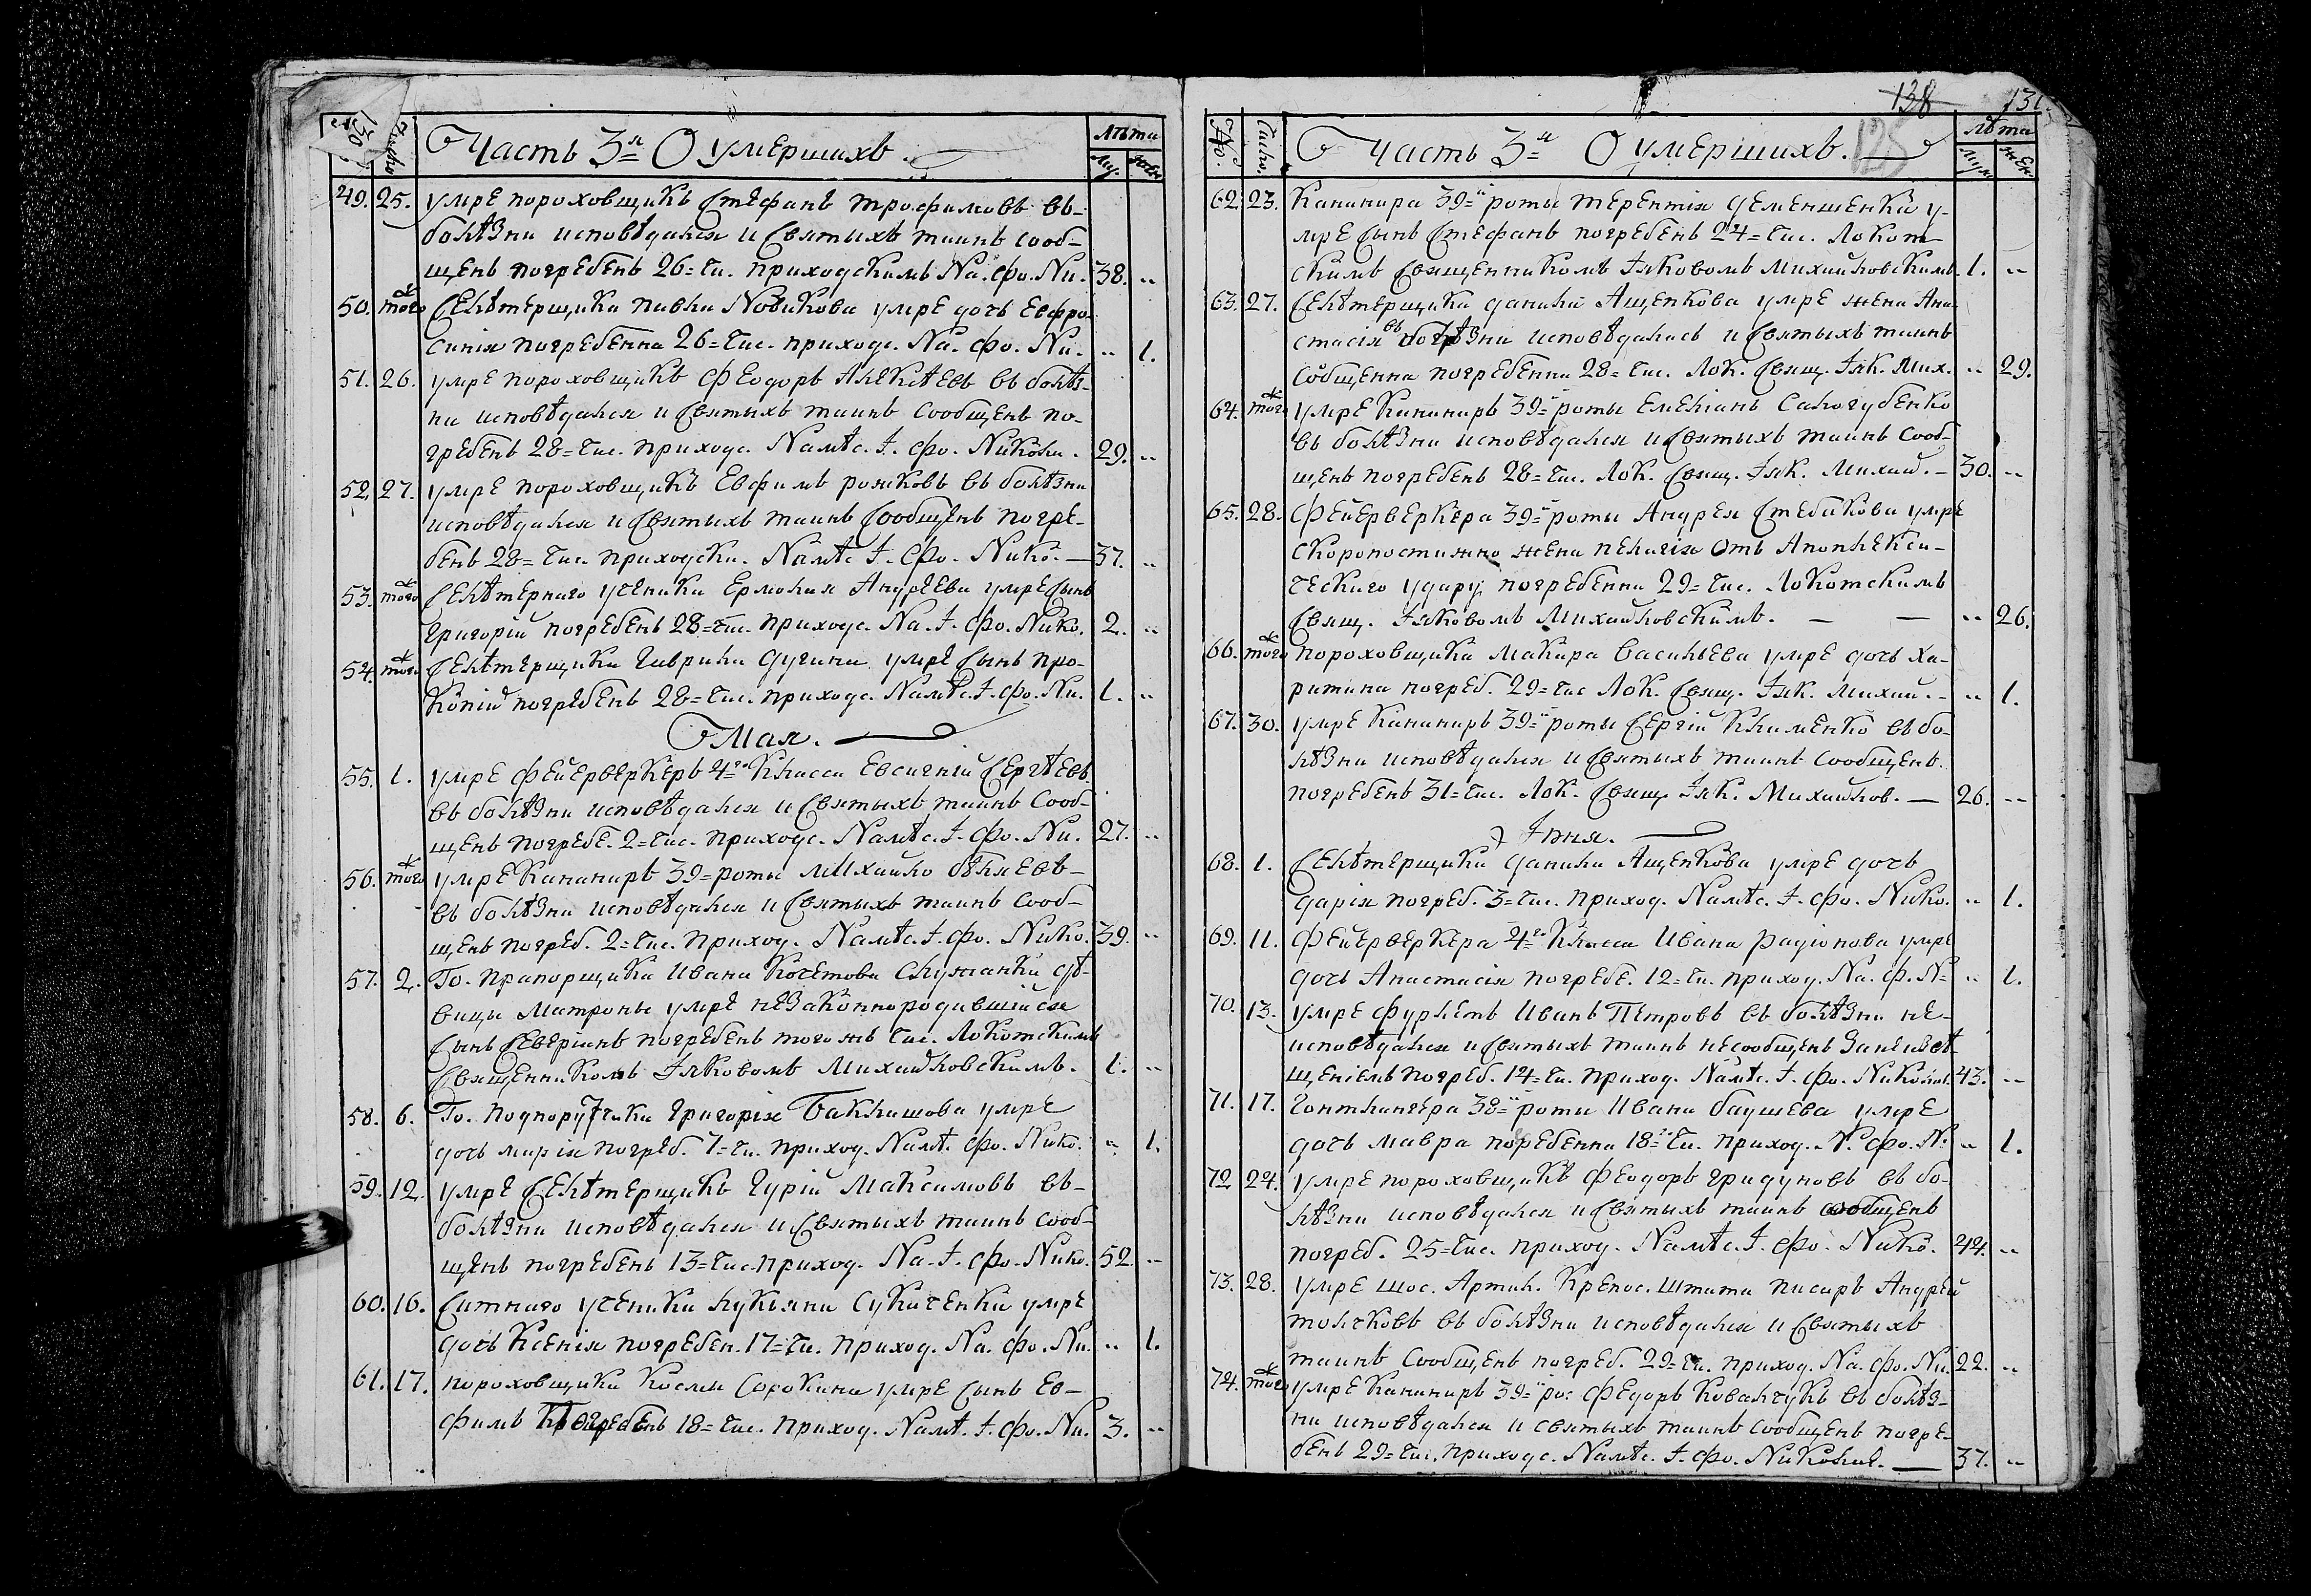 130
Часть 3я О умершихъ.
лѣта
му. жен.
49. 25. умре пороховщикъ Стефанъ трофимовъ въ-
болѣзни исповѣдался и Святыхъ таинъ сооб-
щенъ погребенъ 26= чи. приходскимъ На. фо. Ни. 38. ..
50. тогож Селѣтерщика павла Новикова умре дочь Евфро-
синія погребенна 26= чис. приходс. На. фо. Ни. .. 1.
51. 26. умре пороховщикъ Феодоръ Алексѣевъ въ болѣз-
ни исповѣдался и Святыхъ таинъ Сообщенъ по-
гребенъ 28= чис. приходс. Намѣс. І. фо. Никола. 29. ..
52. 27. умре пороховщикъ Евфимъ рожковъ въ болѣзни
исповѣдался и Святыхъ таинъ Сообщенъ погре-
бенъ 28= чис. приходски. Намѣс І. Фо. Нико. — 37. ..
53. тогож Селѣтернаго ученика Ермолая Андреева умре Сынъ
Григорій погребенъ 28= чис. приходс. На. І. Фо. Нико. 2. ..
54. тогож Селѣтерщика Гаврила дугина умре Сынъ про-
копій погребенъ 28= чис. приходс. Намѣс. І. фо. Ни. 1. ..
Мая.
55. 1. умре Фейерверкеръ 4го Класса Евсигній Сергѣевъ
въ болѣзни исповѣдался и Святыхъ таинъ Сооб-
щенъ погребе. 2= чис. приходс. Намѣс. І. фо. Ни. 27. ..
56. тогож умре Канониръ 39= роты Михайло бѣляевъ-
въ болѣзни исповѣдался и Святыхъ таинъ сооб-
щенъ погреб. 2= чис. приход. Намѣс. І. фо. Нико. 39. ..
57. 2. Го. Прапорщика Ивана Кочетова Служанки дѣ-
вицы Матроны умре незаконнородившійся
Сынъ Северіанъ погребенъ тогожъ чис. Локотскимъ
Священникомъ Іяковомъ Михайловскимъ. 1. ..
58. 6. Го. Подпоручика Григорія Баклашова умре
дочь марія погреб. 7= чи. приход. Намѣ. фо. Нико. .. 1.
59. 12. умре Селѣтерщикъ Гурій Максимовъ въ-
болѣзни исповѣдался и Святыхъ таинъ сооб-
щенъ погребенъ 13= чис. приход. На. І. фо. Нико. 52. ..
60. 16. Ситнаго ученика лукьяна Сукаченка умре
дочь Ксенія погребен. 17= чи. приход. На. фо. Ни. .. 1.
61. 17. пороховщика Космы Сорокина умре сынъ Ев-
фимъ Погребенъ 18= чис. приход. Намѣ. І. фо. Ни. 3. ..
138 131.
125
Но. Число.
Часть 3я О умершихъ.
лѣта
муж. жен.
62. 23. Канонира 39й роты терентія деменшенка у-
мре Сынъ Стефанъ погребенъ 24= чис. Локот-
скимъ Священникомъ Іяковомъ Михайловскимъ. 1. ..
63. 27. Селѣтерщика данила Ащепкова умре жена Ана-
стасія въ болѣзни исповѣдалась и Святыхъ таинъ
Сообщенна погребенна 28= чис. Лок. Свящ. Іяк. Мих. .. 29.
64. тогож умре Канониръ 39й роты Емельянъ Салогубенко
въ болѣзни исповѣдался и Святыхъ таинъ Сооб-
щенъ погребенъ 28= чис. Лок. Свящ. Іяк. Михай. — 30. ..
65. 28. Фейерверкера 39й роты Андрея Стебакова умре
скоропостижно жена пелагія отъ Апоплекси-
ческаго удару погребенна 29= чис. Локотскимъ
Свящ. Іяковомъ Михайловскимъ. — — .. 26.
66. тогож пороховщика макара Васильева умре дочь ха-
ритина погреб. 29= чис Лок. Свящ. Іяк. Михай. - .. 1.
67. 30. умре Канониръ 39й роты Сергій Клименко въ бо-
лѣзни исповѣдался и Святыхъ таинъ Сообщенъ.
погребенъ 31= чис. Лок. Свящ. Іяк. Михайлов. — 26. --
Іюня.
68. 1. Селѣтерщика данила Ащепкова умре дочь
дарія погреб. 3= чис. приход. Намѣс. І. фо. Нико. .. 1.
69. 11. Фейерверкера 4го Класса Ивана Радіонова умре
дочь Анастасія погребе. 12= чи. приход. На. Ф. Н= .. 1.
70. 13. умре Фурлетъ Иванъ Петровъ въ болѣзни не-
исповѣдался и Святыхъ таинъ несообщенъ Занеизвѣ-
щеніемъ погреб. 14= чи. приход. Намѣс. І. фо. Николы. 43. --
71. 17. Гонтлангера 38й роты Ивана баушева умре
дочь мавра погребенна 18го чи. приход. Н. фо. Н. .. 1.
72. 24. умре пороховщикъ Феодоръ гридуновъ въ бо-
лѣзни исповѣдался и Святыхъ таинъ сообщенъ
погреб. 25= чис. приход. Намѣс. І. фо. Нико. 44. ..
73. 28. умре шос. Артил. Крепос. штата писарь Андрей
толчковъ въ болѣзни исповѣдался и Святыхъ
таинъ Сообщенъ погреб. 29= чи. приход. На. фо. Ни. 22. ..
74. тогож умре Канониръ 39й ро: Федоръ Ковальчукъ въ болѣз-
ни исповѣдался и святыхъ таинъ сообщенъ погре-
бенъ 29= чис. приходс. Намѣс. І. фо. Николаі. — 37. ..